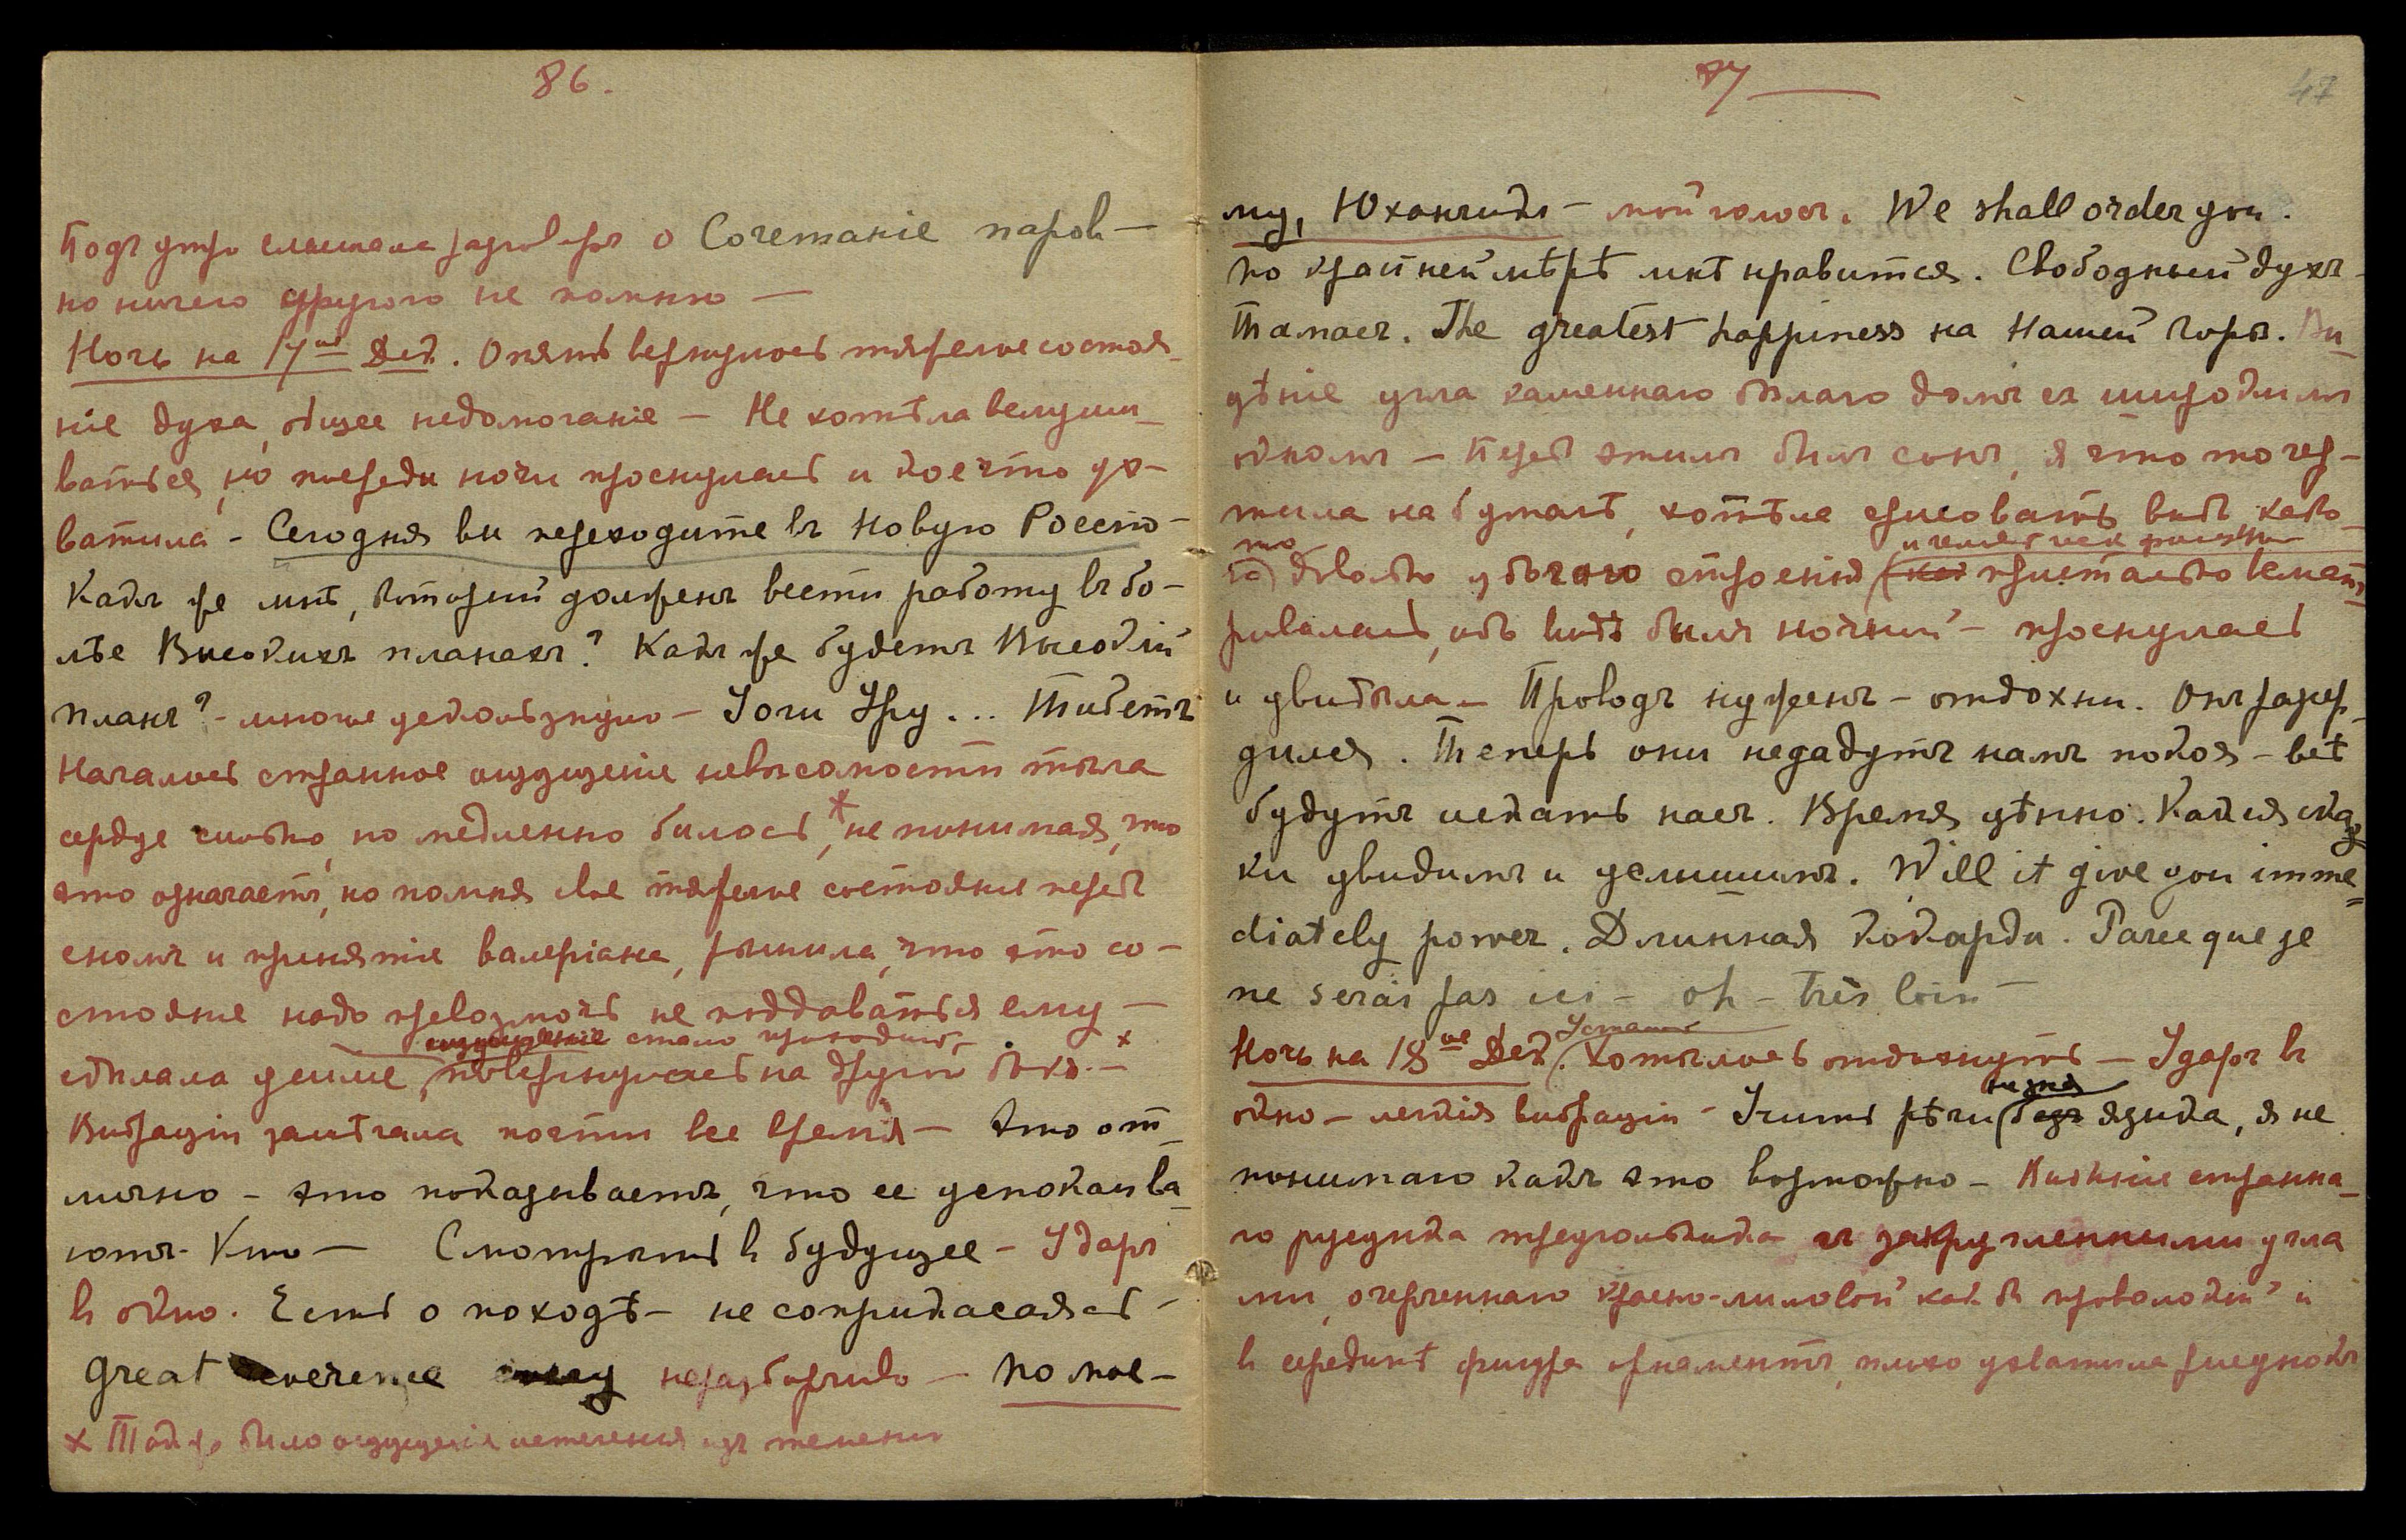 86.
Подъ утро слышала разговоръ о Сочетаніе паровъ —
но ничего другого не помню —
Ночь на 17ое Дек. Опять вернулось тяжелое состоя-
ніе духа, общее недомоганіе — Не хотѣла вслуши-
ваться, но посреди ночи проснулась и кое что ух-
ватила - Сегодня вы переходите въ Новую Россію -
Какъ же мнѣ, который долженъ вести работу въ бо-
лѣе Высокихъ планахъ? Какъ же будетъ Высокій
планъ? - многое ускользнуло - Іоги Уру ... Тибетъ
Началось странное ощущеніе невѣсомости тѣла
сердце сильно, но медленно билось,* не понимая, что
это означаетъ, но помня свое тяжелое состояніе передъ
сномъ и принятіе валеріана, рѣшила, что это со-
стояніе надо превозмочь не поддаваться ему —
ощущеніе стало проходить,
сдѣлала усиліе, повернулась на другой бокъ. — х
Вибраціи замѣчала почти все время — Это от-
лично - это показываетъ, что ее успокаива-
ютъ. Кто — Смотрѣть въ будущее - Ударъ
въ окно. Есть о походѣ — не соприкасаясь -
great неразборчиво — По мое-
х Также было ощущеніе истеченія изъ темени
87
47
му, Юханчидъ - мой голосъ. We shall order you.
по крайней мѣрѣ мнѣ нравится. Свободный духъ -
Тамасъ. The greatest happiness на Нашей Горѣ. Ви-
дѣніе угла каменнаго бѣлаго дома съ широкимъ
окномъ — Передъ этимъ былъ сонъ, я что то чер-
тила на бумагѣ, хотѣла срисовать видъ како-
то
го довольно убогаго строенія пристально всмат-
ривалась, обѣ видѣ были ночные — проснулась
и увидѣла — Проводъ нуженъ - отдохни. Онъ разсер-
дился. Теперь они недадутъ намъ покоя - всѣ
будутъ искать насъ. Время цѣнно. Какія сказ-
ки увидимъ и услышимъ. Will it give you imme-
diately power. Длинная кокарды. Parce que je
ne serai pas ici - oh - très loin —
Усталая
Ночь на 18ое Дек. Хотѣлось отдохнуть — Ударъ въ
окно - легкія вибраціи - Учить рѣчи не зная
безъ языка, я не
понимаю какъ это возможно - Видѣніе странна-
го рисунка треугольника съ закругленными угла
ми, очерченнаго красно-лиловой какъ бы проволокой и
въ серединѣ фигура орнаментъ, плохо ухватила рисунокъ